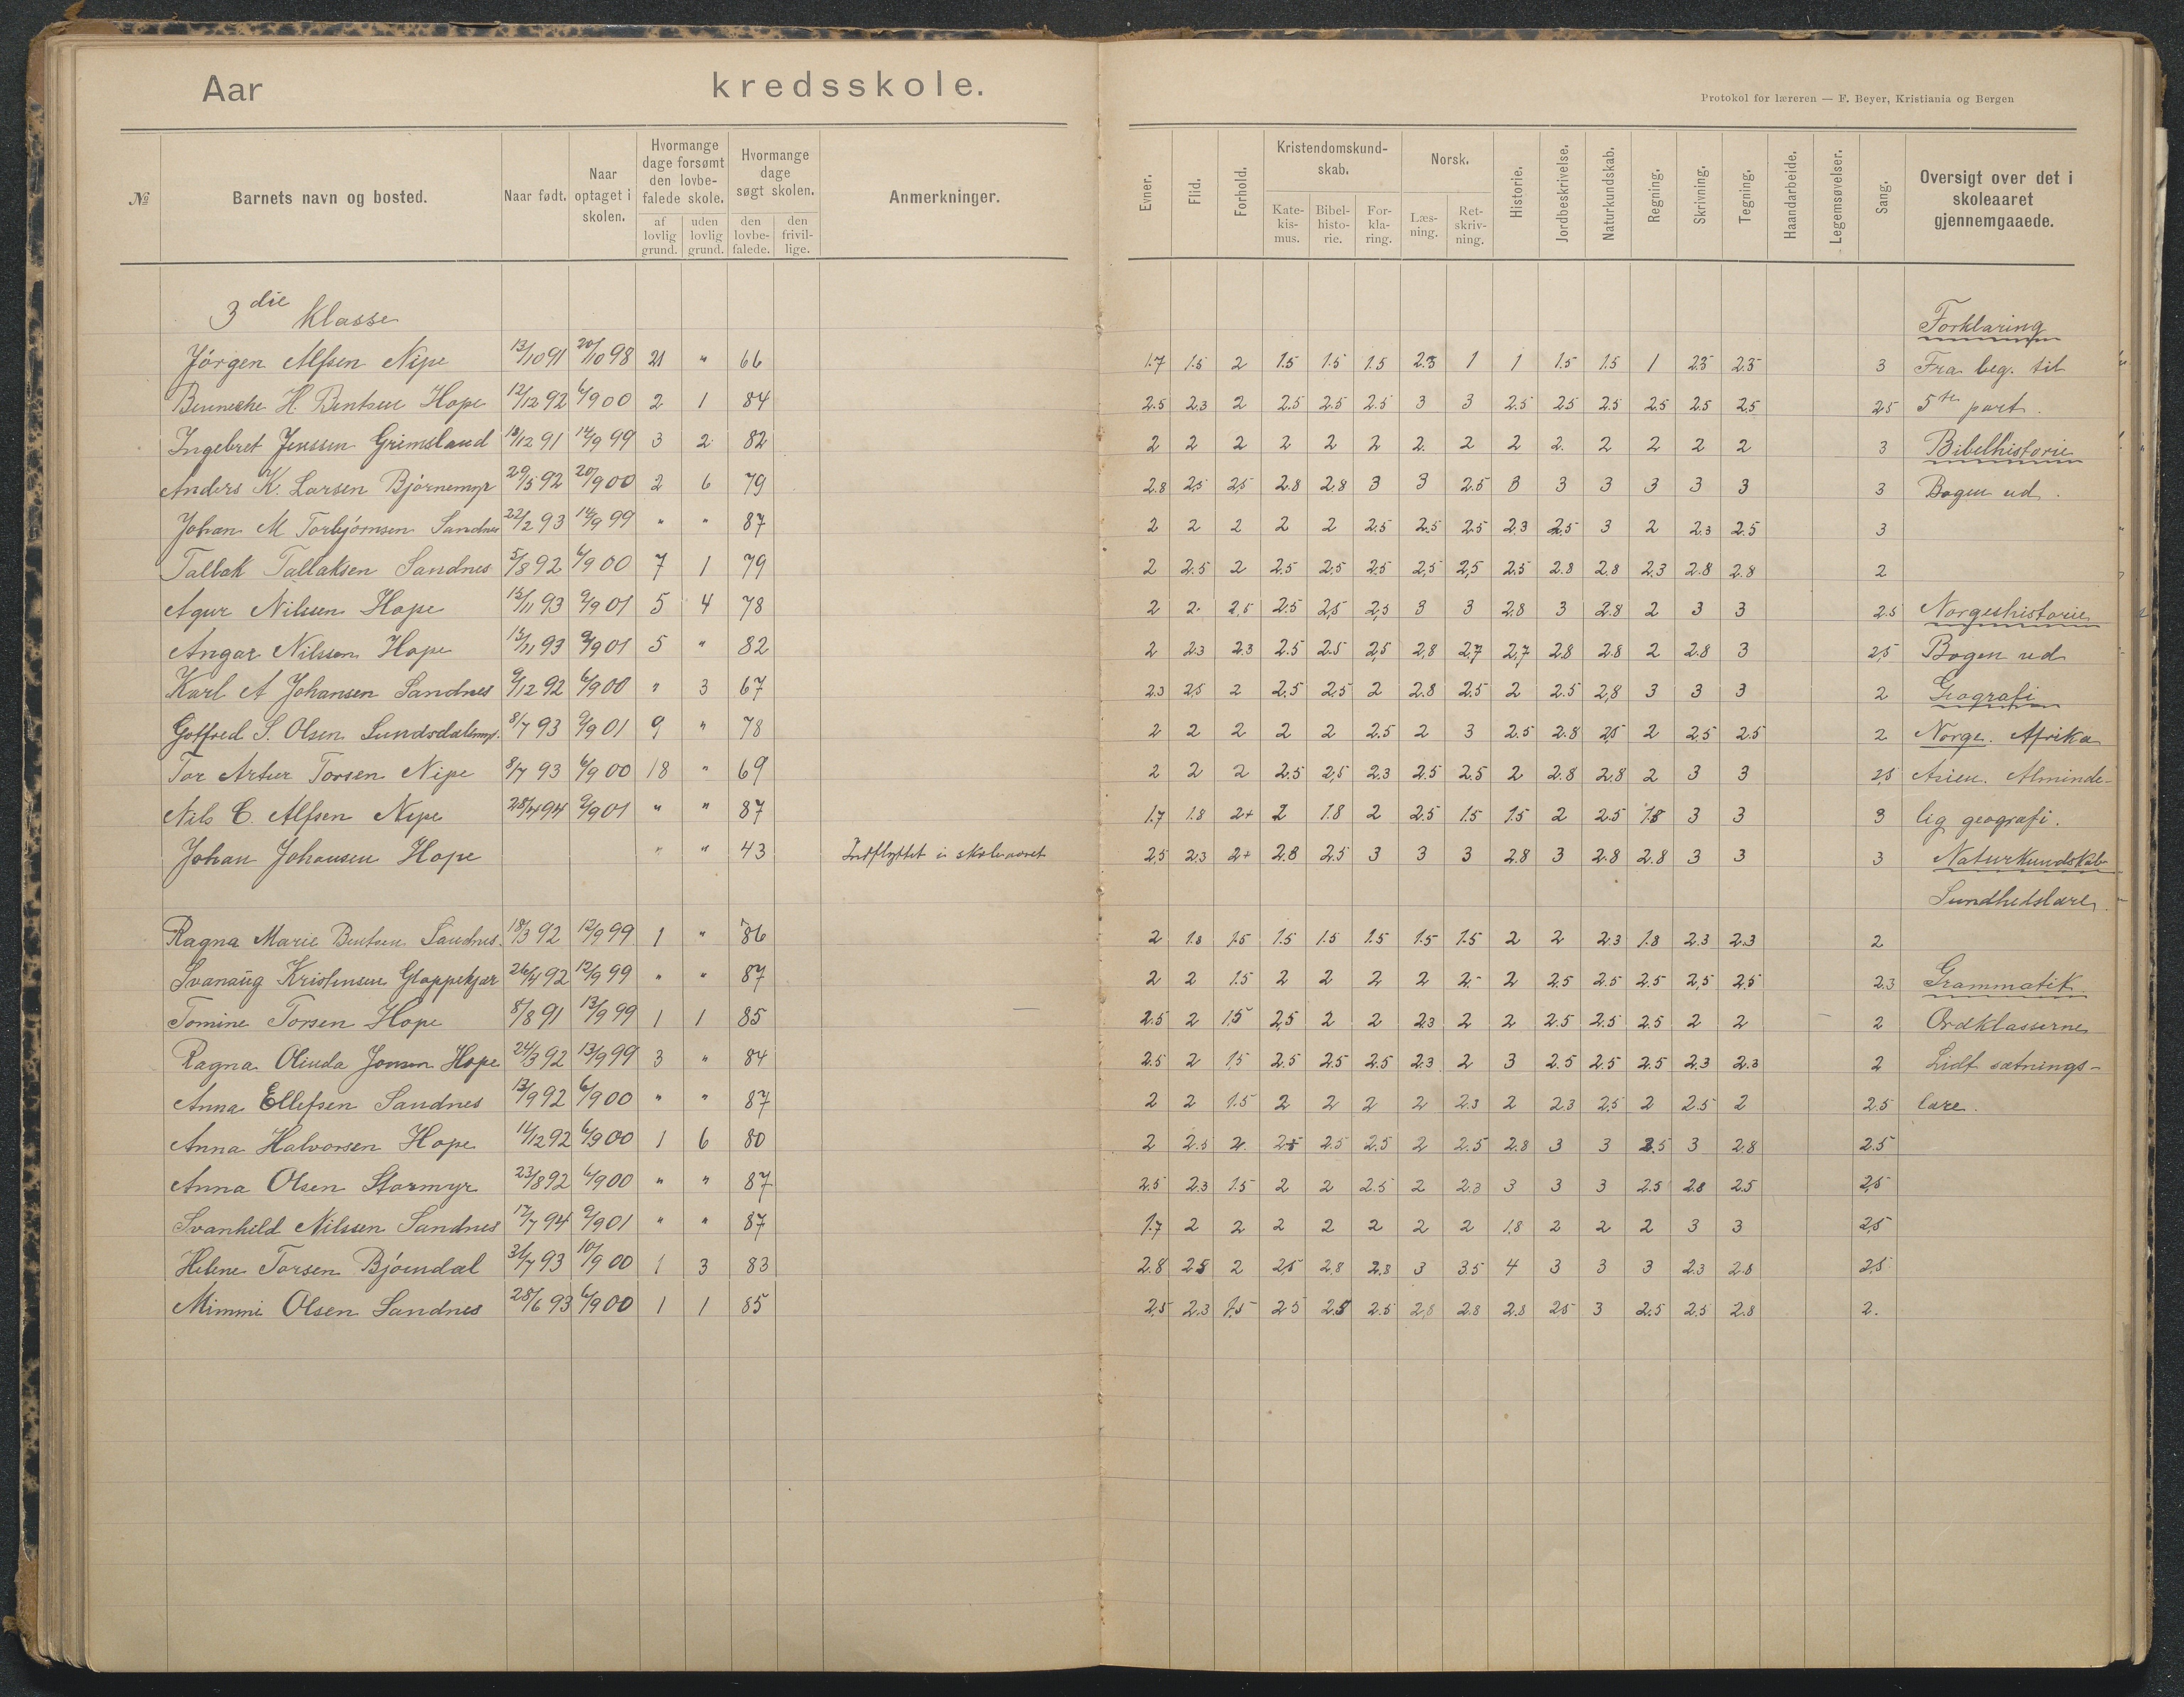 Aar kredsskole.
Protokol for læreren — F. Beyer, Kristiania og Bergen
№ Barnets navn og bosted. Naar født. Naar optaget i skolen. Hvormange dage forsømt den lovbefalede skole. af lovlig grund. uden lovlig grund. Hvormange dage søgt skolen. den lovbefalede. den frivillige. Anmerkninger. Evner. Flid. Forhold. Kristendomskundskab. Katekismus. Bibelhistorie. Forklaring. Norsk. Læsning. Retskrivning. Historie. Jordbeskrivelse. Naturkundskab. Regning. Skrivning. Tegning. Haandarbeide. Legemsøvelser. Sang. Oversigt over det i skoleaaret gjennemgaaede.
3die Klasse Forklaring
Jörgen Alfsen Nipe 13/10 91 20/10 98 21 " 66 1.7 1.5 2 1.5 1.5 1.5 2.3 1 1 1.5 1.5 1 2.3 2.5 3 Fra beg. til
Benneche H. Bentsen Hope 12/12 92 6/9 00 2 1 84 2.5 2.3 2 2.5 2.5 2.5 3 3 2.5 2.5 2.5 2.5 2.5 2.5 2.5 5te part.
Ingebret Jenssen Grimsland 18/12 91 14/9 99 3 2 82 2 2 2 2 2 2 2. 2 2 2. 2 2 2 2 3 Bibelhistorie
Anders K. Larsen Bjørnemyr 29/5 92 20/9 00 2 6 79 2.8 2.5 2.5 2.8 2.8 3 3 2.5 3 3 3 3 3 3 3 Bogen ud.
Johan M Torbjörnsen Sandnes 22/2 93 14/9 99 " " 87 2 2 2 2 2 2.5 2.5 2.5 2.3 2.5 3 2 2.3 2.5 3
Tallak Tallaksen Sandnes 5/8 92 6/9 00 7 1 79 2 2.5 2 2.5 2.5 2.5 2.5 2.5 2.5 2.8 2.8 2.3 2.8 2.8 2
Agur Nilssen Hope 13/11 93 9/9 01 5 4 78 2 2. 2.5 2.5 2.5 2.5 3 3 2.8 3 2.8 2 3 3 2.5 Norgeshistorie
Angar Nilssen Hope 13/11 93 9/9 01 5 " 82 2 2.3 2.3 2.5 2.5 2.5 2.8 2.7 2.7 2.8 2.8 2 2.8 3 2.5 Bogen ud
Karl A Johansen Sandnes 9/12 92 6/9 00 " 3 67 2.3 2.5 2 2.5 2.5 2 2.8 2.5 2 2.5 2.8 3 3 3 2 Geografi
Goffred S. Olsen Lundsdalemyr. 8/7 93 9/9 01 9 " 78 2 2 2 2 2 2.5 2 3 2.5 2.8 2.5 2 2.5 2.5 2 Norge. Afrika
Tor Artur Torsen Nipe 8/7 93 6/9 00 18 " 69 2 2 2 2.5 2.5 2.3 2.5 2.5 2 2.8 2.8 2 3 3 2.5 Asien. Alminde-
Nils C. Alfsen Nipe 28/4 94 9/9 01 " " 87 1.7 1.8 2+ 2 1.8 2 2.5 1.5 1.5 2 2.5 1.8 3 3 3 lig geografi.
Johan Johansen Hope " " 43 Indflyttet i skoleaaret 2.5 2.3 2+ 2.8 2.5 3 3 3 2.8 3 2.8 2.8 3 3 3 Naturkundskab
Sundhedslære.
Ragna Marie Bentsen Sandnes. 18/3 92 12/9 99 1 " 86 2 1.8 1.5 1.5 1.5 1.5 1.5 1.5 2 2 2.3 1.8 2.3 2.3 2
Svanaug Kristensen Gloppekjær 26/4 92 12/9 99 " " 87 2 2 1.5 2 2 2 2 2- 2 2.5 2.5 2.5 2.5 2.5 2.3 Grammatik
Tomine Torsen Hope 8/8 91 13/9 99 1 1 85 2.5 2 1.5 2.5 2 2 2.3 2 2 2.5 2.5 2.5 2 2 2 Ordklasserne
Ragna Olinda Jonson Hope 24/3 92 13/9 99 3 " 84 2.5 2 1.5 2.5 2.5 2.5 2.3 2 3 2.5 2.5 2.5 2.3 2.3 2 Lidt sætnings-
Anna Ellefsen Sandnes 13/9 92 6/9 00 " " 87 2 2 1.5 2 2 2 2 2.3 2 2.3 2.5 2 2.5 2 2.5 lære.
Anna Halvorsen Hope 11/12 92 6/9 00 1 6 80 2 2.5 2. 2.5 2.5 2.5 2 2.5 2.8 3 3 2.5 3 2.8 2.5
Anna Olsen Stormyr 23/8 92 6/9 00 " " 87 2.5 2.3 1.5 2 2 2.5 2 2.3 3 3 3 2.5 2.8 2.5 2.5
Svanhild Nilssen Sandnes 17/7 94 9/9 01 " " 87 1.7 2 2 2 2 2 2 2 1.8 2 2 2 3 3 2.5
Helene Torsen Bjömdal 31/7 93 10/9 00 1 3 83 2.8 2.5 2 2.5 2.8 2.8 3 3.5 4 3 3 3 2.3 2.8 2.5
Mimmi Olsen Sandnes 28/6 93 6/9 00 1 1 85 2.5 2.3 1.5 2.5 2.5 2.5 2.8 2.8 2.8 2.5 3 2.5 2.5 2.8 2.